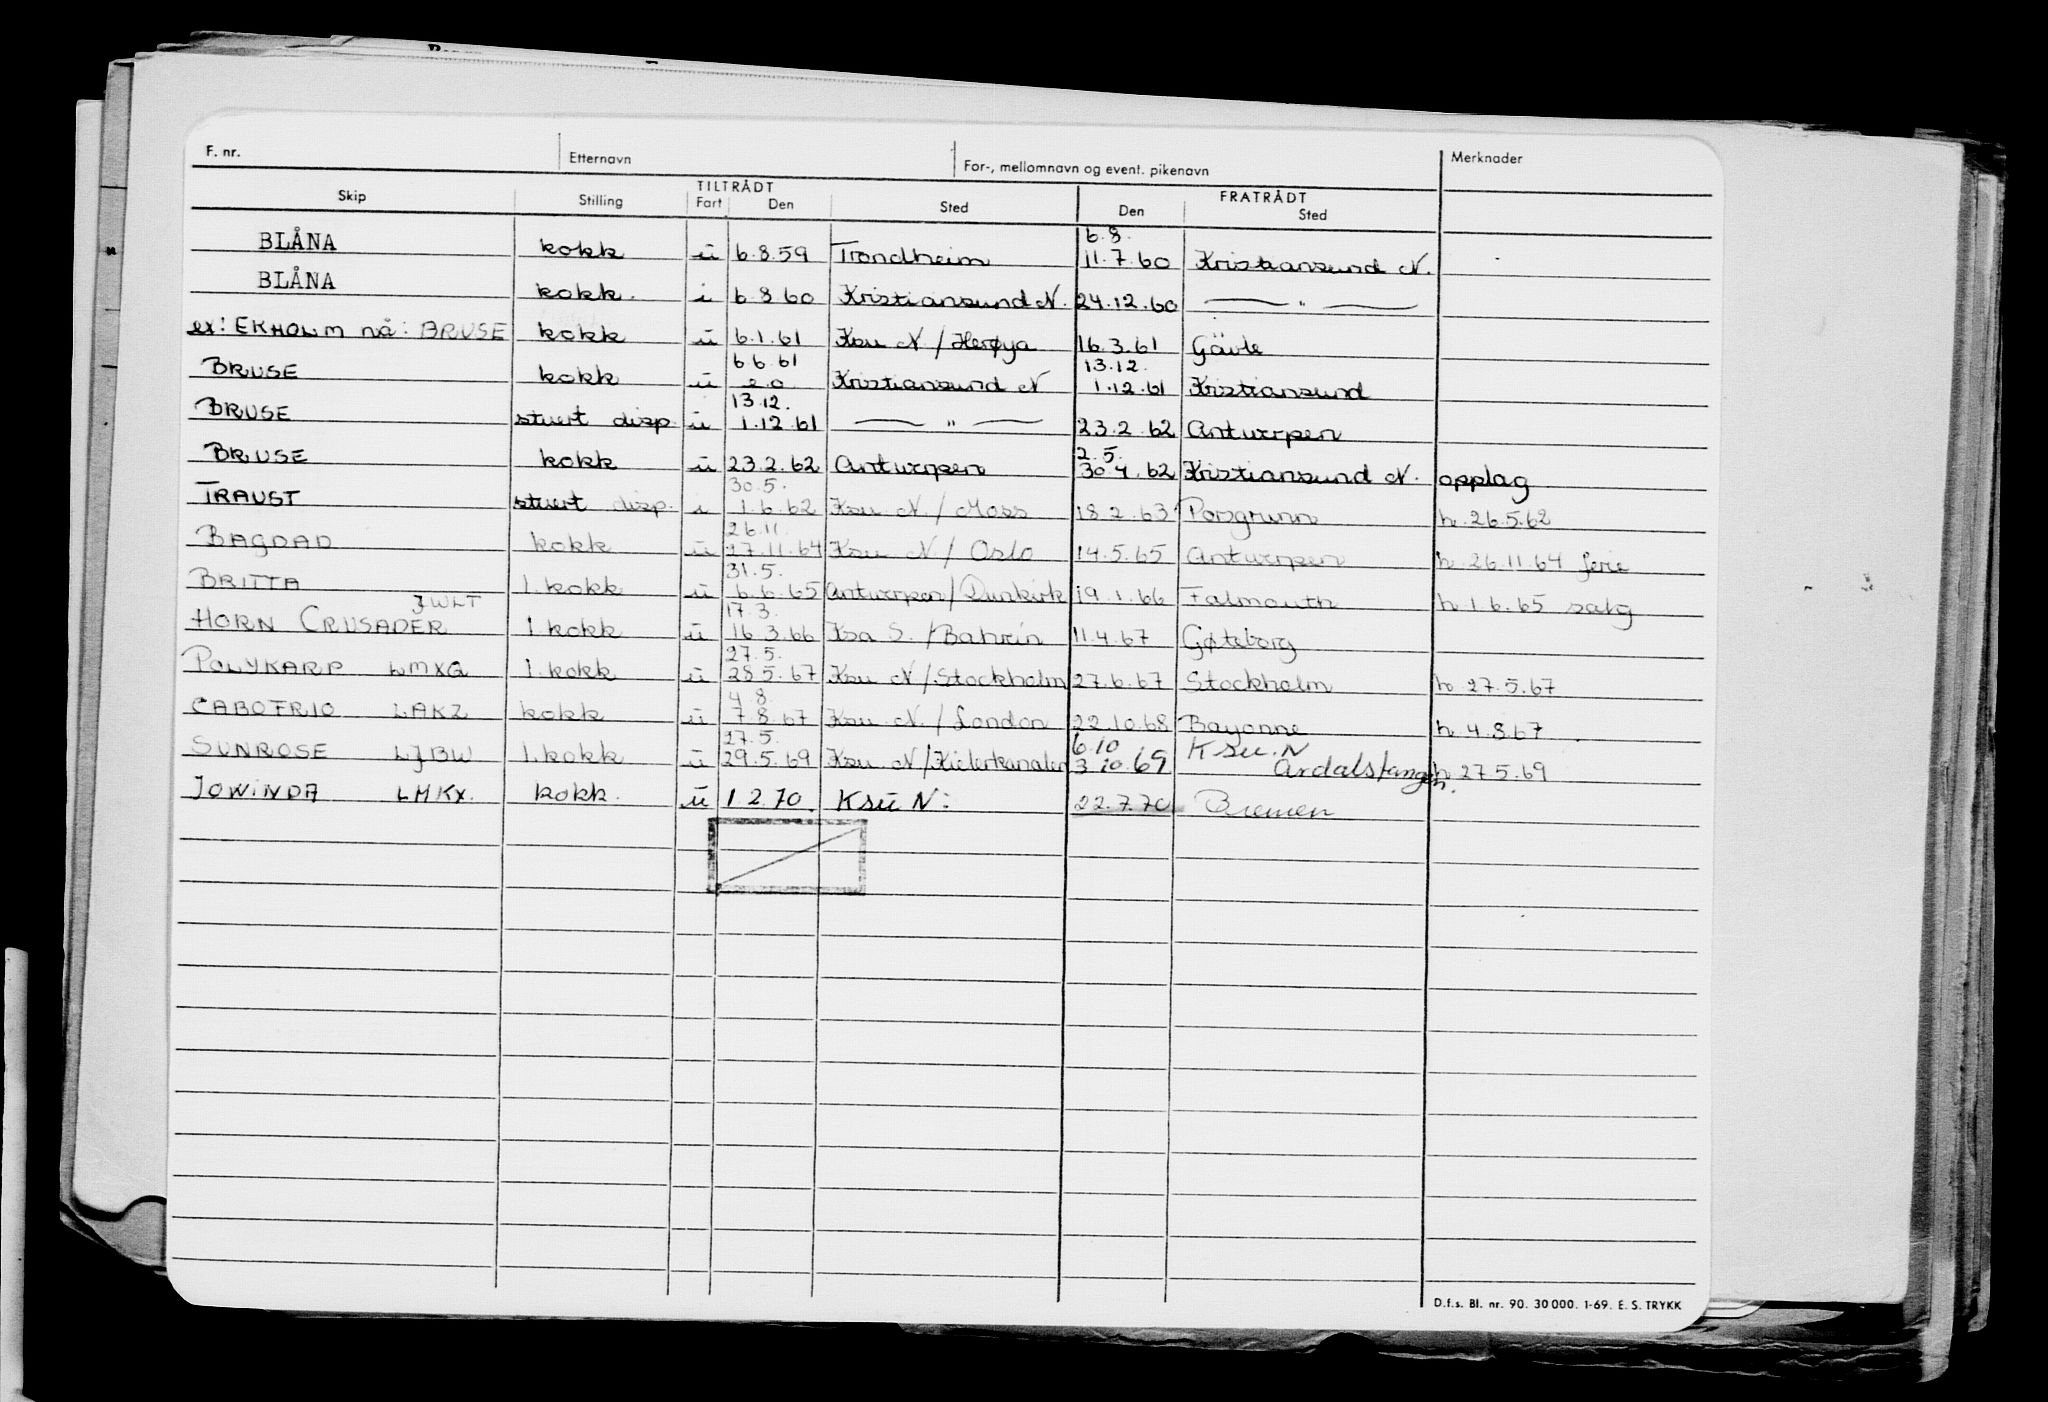 F. nr. Etternavn For-, mellomnavn og event. pikenavn Merknader
TILTRÅDT FRATRÅDT
Skip Stilling Fart Den Sted Den Sted
6.8.
BLÅNA kokk ü 6.8.59 Trondheim 11.7.60 Kristiansund N.
BLÅNA kokk. i 6 8 60 Kristiansund N. 24.12.60 — " —
ex: EKHOLM nå: BRUSE kokk ü 6.1.61 Ksu N / Herøya 16.3.61 Gävle
6.6.61 13.12.
BRUSE kokk ü e.o Kristiansund N 1.12.61 Kristiansund
13.12.
BRUSE stuert disp. ü 1.12 61 — " — 23.2 62 Antwerpen
2.5.
BRUSE kokk ü 23.2.62 Antwerpen 30.4.62 Kristiansund N. opplag
30.5.
TRAUST stuert disp. i 1.6.62 Ksu N. / Moss 18.2.63 Porsgrunn h. 26.5.62
26.11.
BAGDAD kokk ü 27.11.64 Ksu N / Oslo 14.5.65 Antwerpen h. 26.11.64 ferie
31.5.
BRITTA 1. kokk ü 6.6.65 Antwerpen / Dunkirk 19.1.66 Falmouth h 1.6.65 salg
JWLT 17.3.
HORN CRUSADER 1 kokk ü 16 3.66 Ksa S. / Bahrein 11.4.67 Gøteborg
27.5.
POLYKARP LMXQ 1. kokk ü 28 5.67 Ksu N / Stockholm 27.6.67 Stockholm h 27.5.67
4 8.
CABOFRIO LAKZ kokk ü 7.8.67 Ksu N. / London 22.10.68 Bayonne h 4.8.67
27.5. 6.10 Ksu. N
SUNROSE LJBW 1. kokk ü 29.5.69 Ksu N / Kielerkanalen 3 10.69 Årdalstangen. h 27.5.69
JOWINDA LMKX. kokk. ü 1 2.70. Ksü N: 22.7.70 Bremen
D.f.s. Bl. nr. 90. 30 000. 1-69. E. S. TRYKK